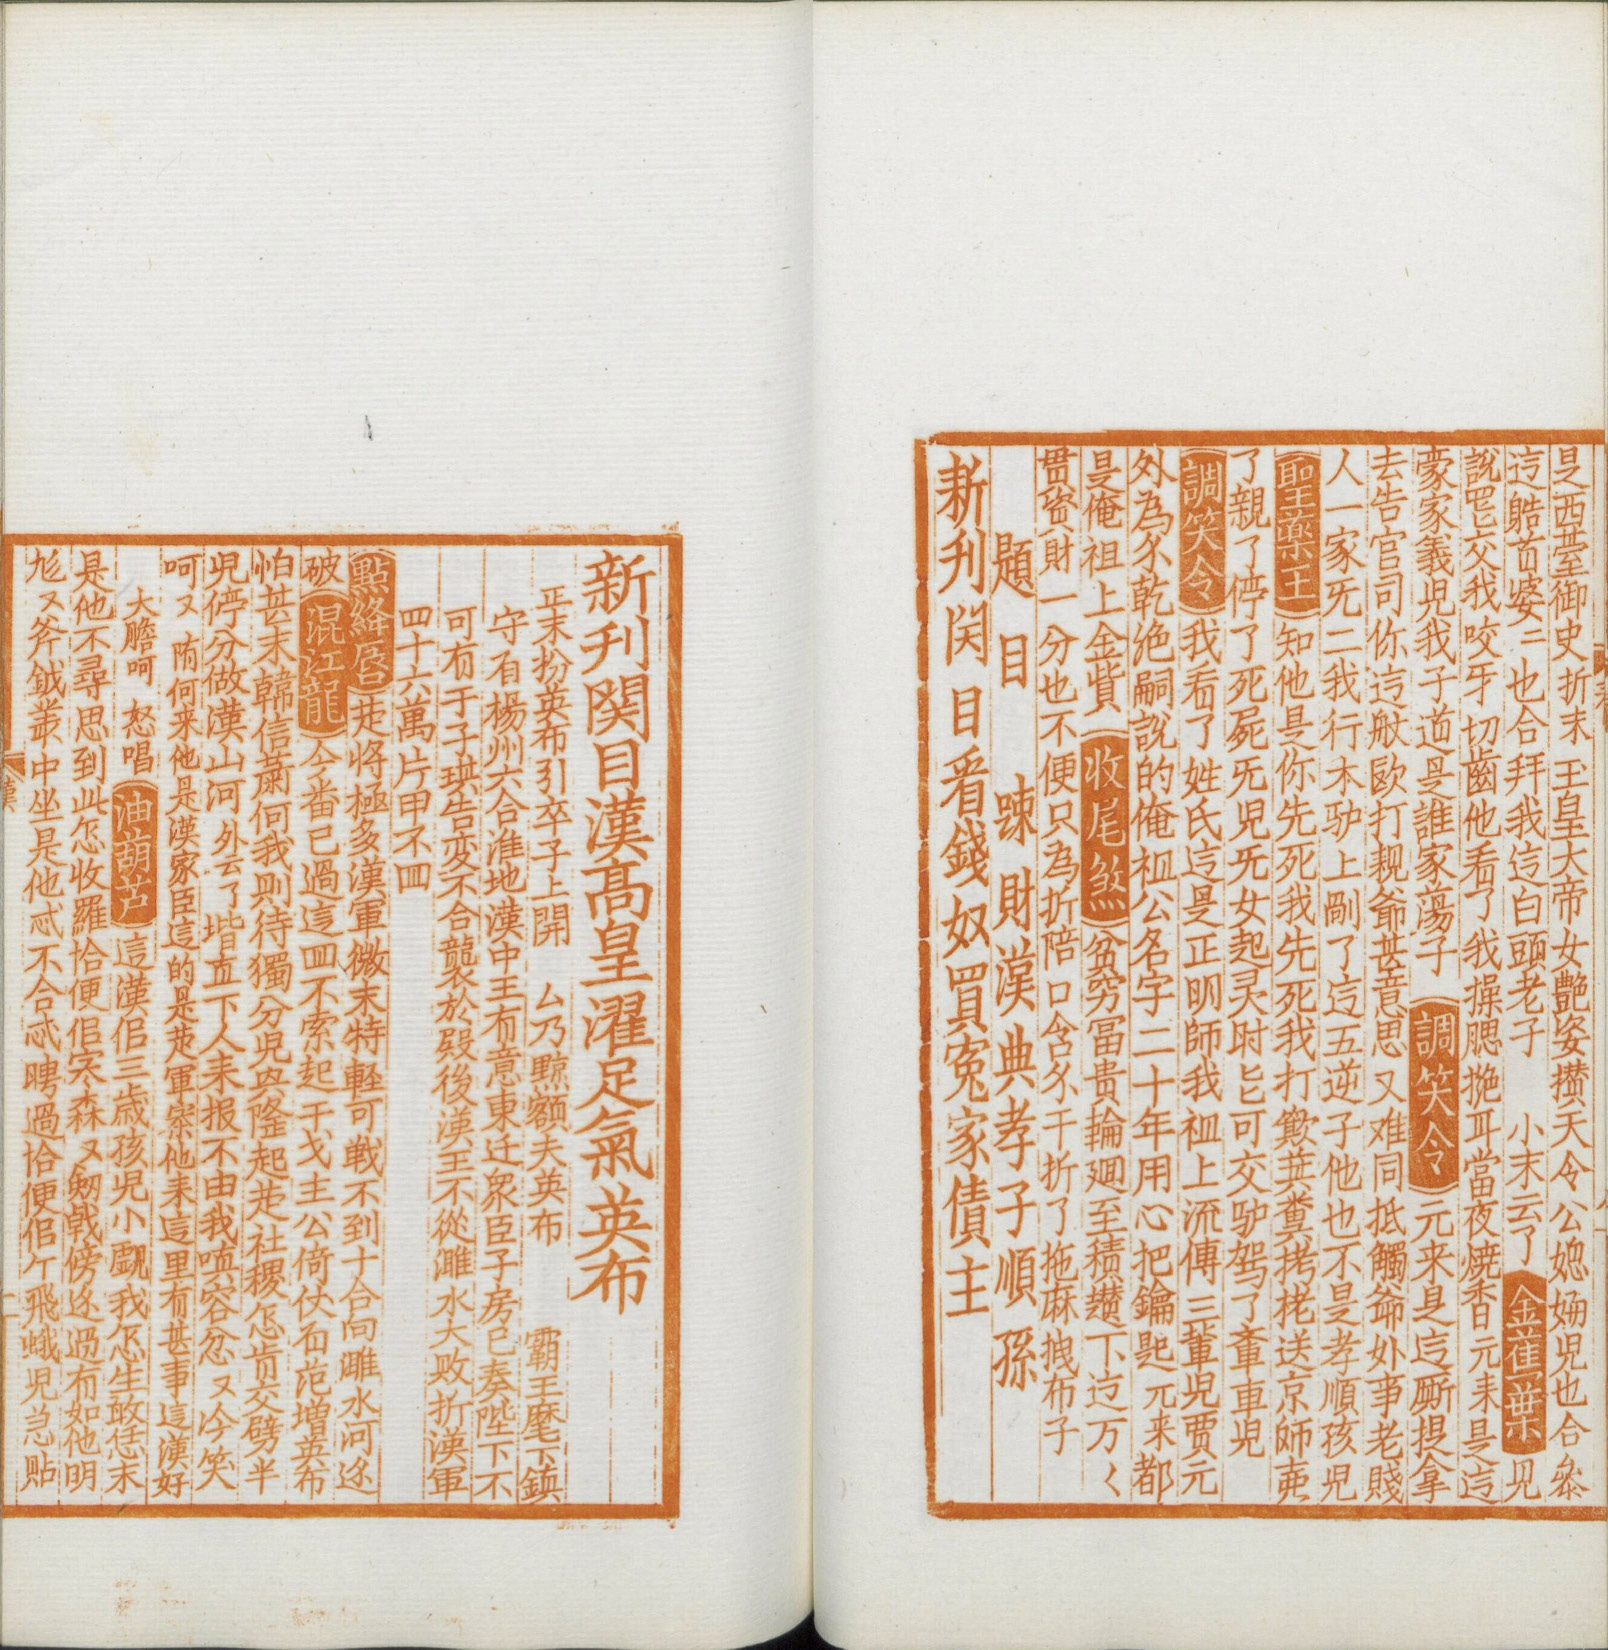 是西臺御史折末玉皇大帝女艶姿攅天令公媳婦児也合叅
這䯌首婆〻也合拜我這白頭老子 小末云了 金蕉葉 児
說罷交我咬牙切齒他看了我揉腮撧耳當夜燒香元來是這
豪家義児我子道是誰家蕩子 調笑令 元來是這厮提拿
去告官司你這般毆打親爺甚意思又难同抵觸爺外事老賤
人一家旡二我行木驴上剮了這五逆子他也不是孝順孩児
聖藥王 知他是你先死我先死我打簸箕糞栲栳送京師
了親了停了死屍旡児旡女起灵时匕匕可交驴驾了車児
調笑令 我看了姓氏這是正明師我祖上流傳三輩児賈元
外為尔乾绝嗣說的俺祖公名字二十年用心把鑰匙元来都
是俺祖上金貲 收尾煞 貧穷冨貴輪廻至積趲下這万く
贯資財一分也不便只為折陪口含尔干折了拖麻拽布子
題目 疎財漢典孝子順孫
新刋関目看錢奴買冤家債主
新刋関目漢髙皇濯足氣英布
正末扮英布引卒子上開 厶乃黥額夫英布 霸王麾下鎮
守有楊州六合淮地漢中王有意東迁众臣子房已奏陛下不
可有于子琪告变不合襲於殁後漢王不從濉水大败折漢軍
四十六萬片甲不囬
點絳唇 楚将極多漢軍微末特軽可戦不到十合向睢水河邊
破 混江龍 今番已過這囬不索起干戈主公倚仗石范増英布
怕甚末韓信蕭何我則待獨分児興隆起楚社稷怎肯交劈半
児停分做漢山河 外云了 堦直下人来报不由我嗔容忿又冷笑
呵又 隋何来他是漢家臣這的是楚軍寨他来這里有甚事這漢好
大膽呵 怒唱 油葫芦 這漢佀三歳孩児小覷我怎生敢恁末
是他不尋思到此怎收羅恰便佀寒森又劒戟傍邊過有如他明
彪又斧鉞叢中坐是他忒不合忒騁過恰便佀个飛蛾児急貼